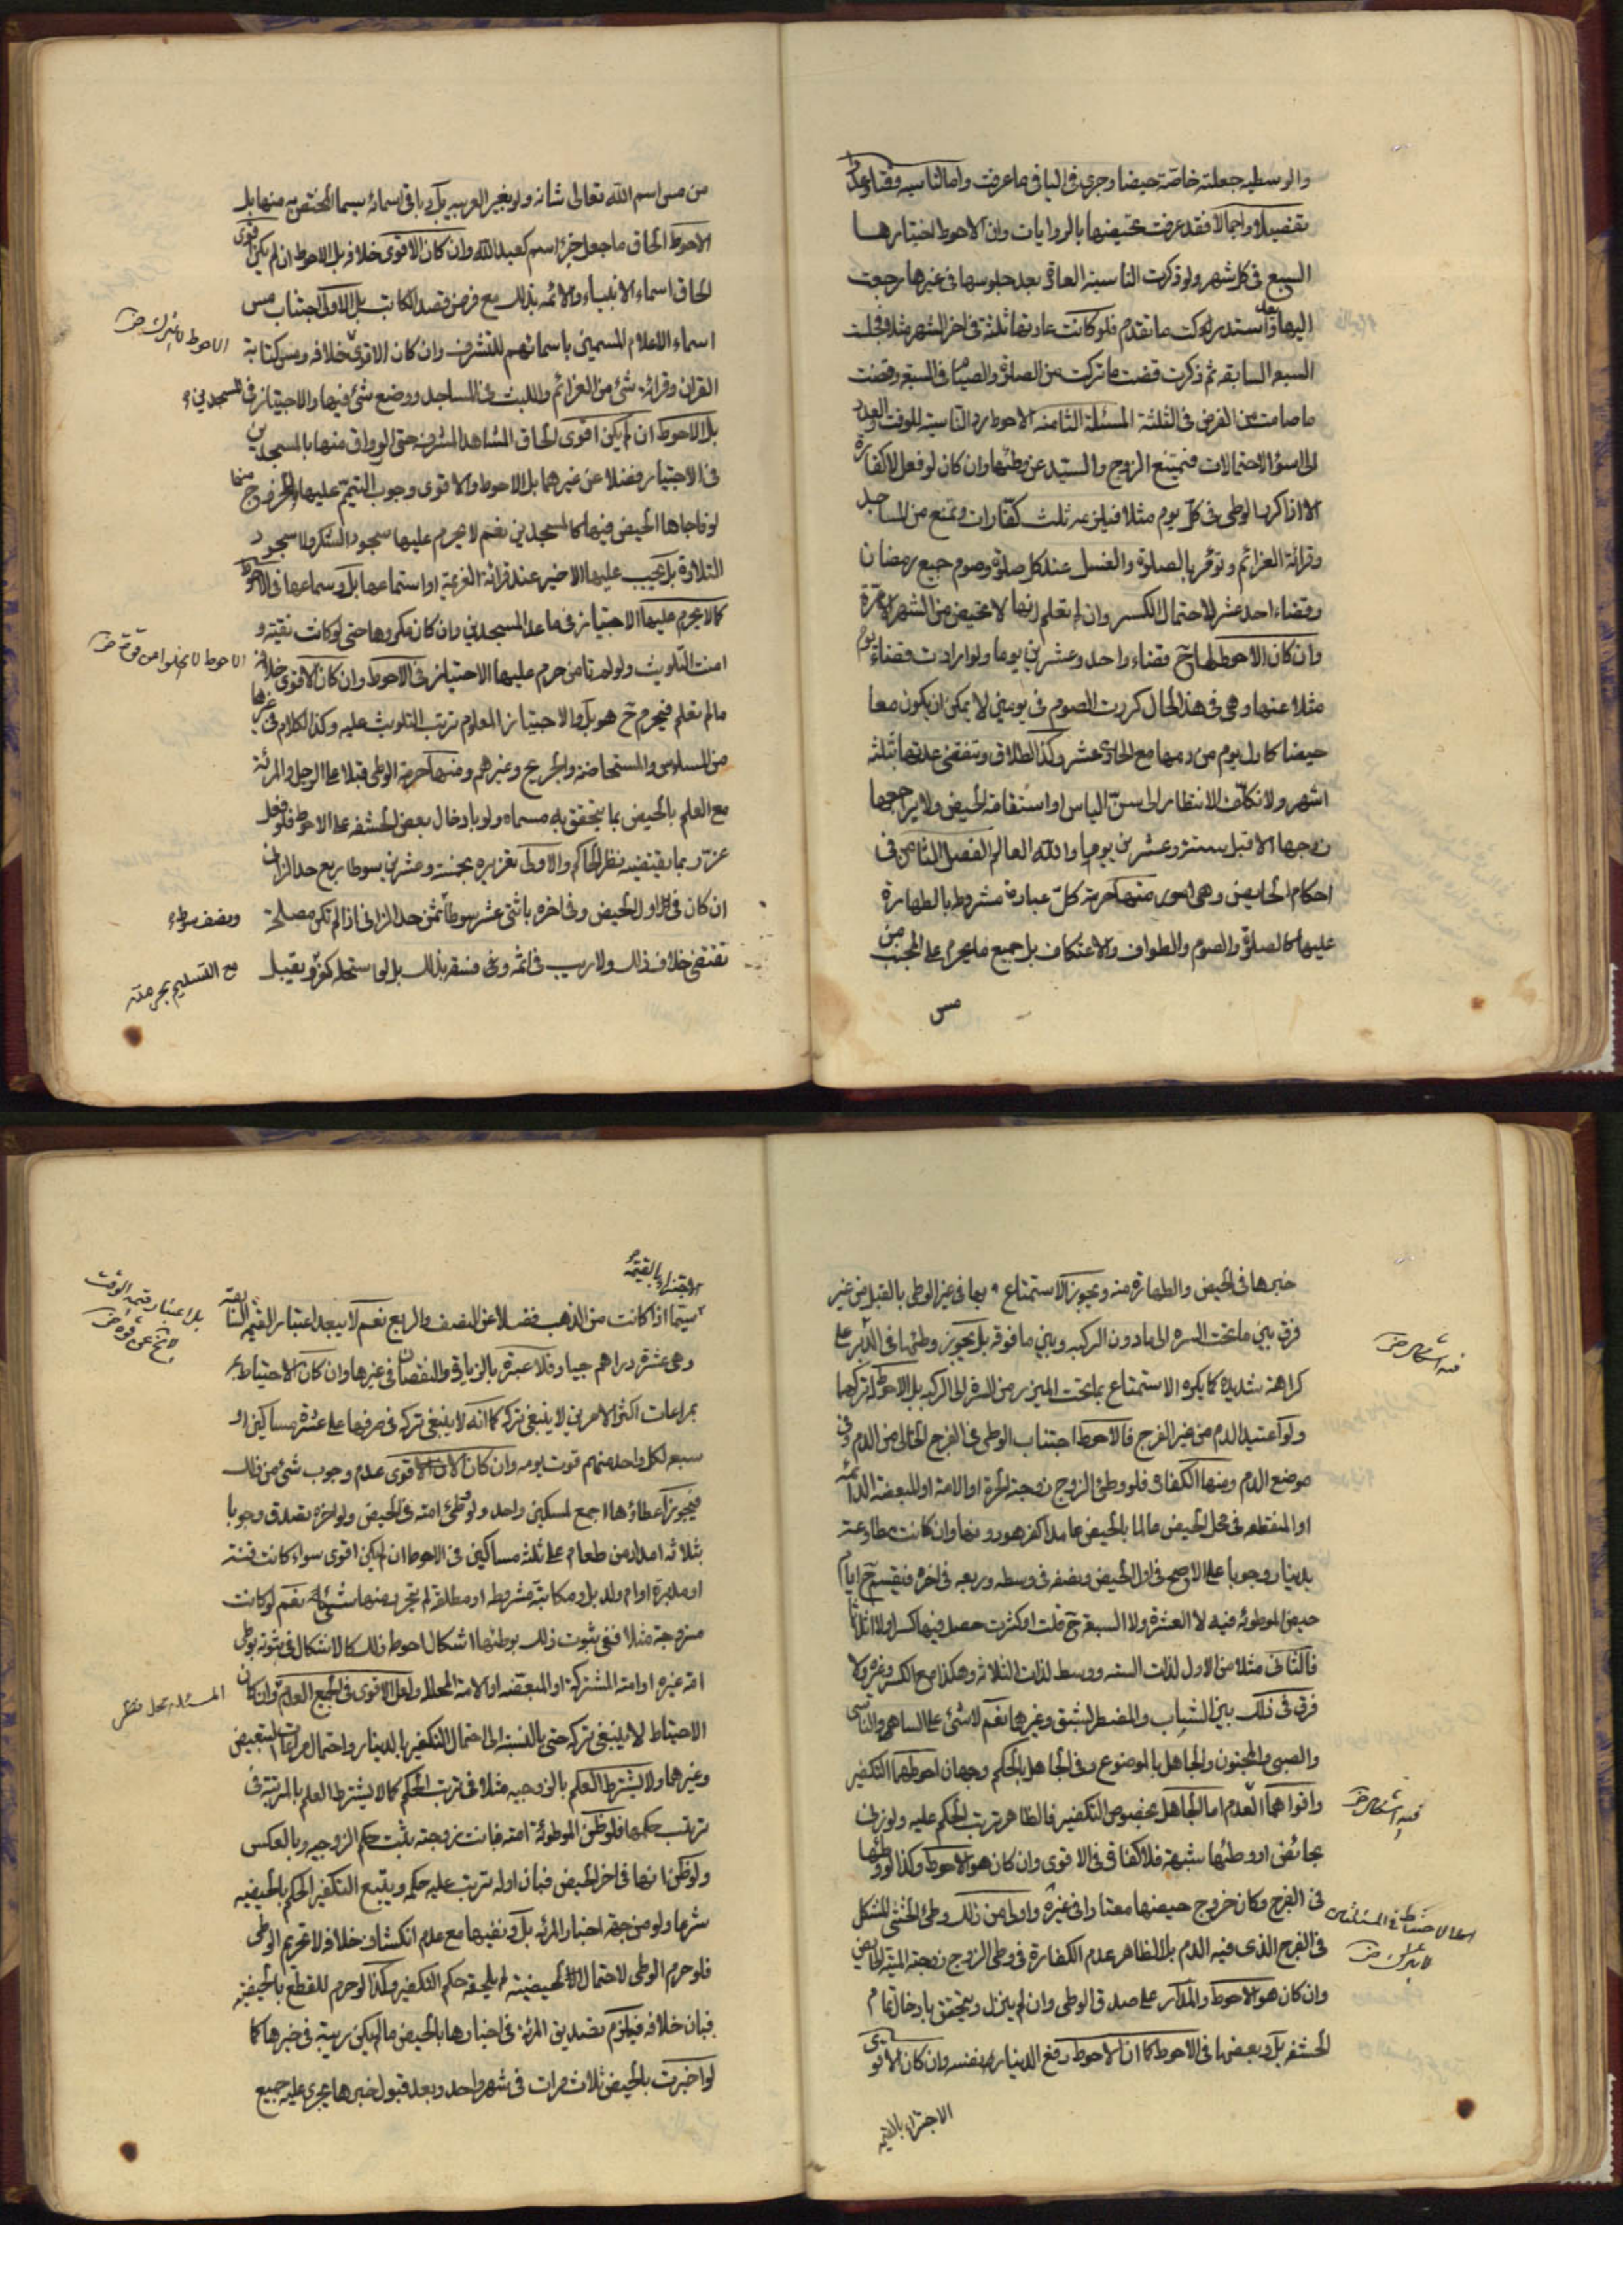 والوسطيه جعلته خاصّة حيضا وجرى فى الباقى ما عرفت واما الناسيه وقتا وعددا
تفصيلا واجمالا فقد عرفت تحيّضها بالروايات وان الاحوط اختيارها
السبع فى كل شهر ولو ذكرت الناسية العادة بعد جلوسها فى غيرها رجعت
اليها واستدركت ما تقدم فلو كانت عادتها ثلثة فى اخر الشهر مثلا فجلست
السبعه السابقه ثم ذكرت قضت ما تركت من الصلوة والصيام فى السبعة وقضت
ما صامت من الفرض فى الثلثة المسئلة الثامنه الاحوط رد الناسية للوقت والعدد
الى اسوء الاحتمالات فيمتنع الزوج والسيّد عن وطئها وان كان لو فعل لا كفارة
الا اذا كرر الوطى فى كلّ يوم مثلا فيلزمه ثلث كفّارات وتمنع من المساجد
وقرائة العزائم وتؤمر بالصلوة والغسل عند كل صلوة وصوم جميع رمضان
وقضاء احد عشر لاحتمال الكسر وان لم تعلم انها لا تحيض من الشهر الا مرة
وان كان الاحوط لها ح قضاء واحد وعشرين يوما ولو ارادت قضاء يوم
مثلا عنها وهى فى هذا الحال كررت الصوم فى يومين لا يمكن ان يكون معا
حيضا كاول يوم من دمها مع الحادى عشر وكذا الطلاق وتنقضى عدتها ثلثه
اشهر ولا تكلّف الانتظار الى سنّ الياس او استقامة الحيض ولا يراجعها
زوجها الا قبل ستة وعشرين يوما والله العالم الفصل الثامن فى
احكام الحايض وهى امور منها حرمة كلّ عبادة مشروطه بالطهارة
عليها كالصلوة والصوم والطواف والاعتكاف بل جميع ما يحرم على الجنب من
مس
من مس اسم الله تعالى شانه ولو بغير العربيه بل وباقى اسمائه سيما المختص به منها بل
الاحوط الحاق ما جعل جزء اسم كعبد الله وان كان الاقوى خلافه بل الاحوط ان لم يكن اقوى
الحاق اسماء الانبياء والائمه بذلك مع فرض قصد الكاتب بل الاولى اجتناب مس
اسماء الاعلام المسمين باسمائهم للتشرف وان كان الاقوى خلافه ومس كتابة
الاحوط لا يترك
القران وقرائة شئ من العزائم واللبث فى المساجد ووضع شئ فيها والاجتياز فى المسجدين
بل الاحوط ان لم يكن اقوى الحاق المشاهد المشرفه حتى الرواق منها بالمسجدين
فى الاجتياز فضلا عن غيرهما بل الاحوط والاقوى وجوب التيمّم عليها للخروج منها
لو فاجاها الحيض فيها كالمسجدين نعم لا يحرم عليها سجود الشكر ولا سجود
التلاوة بل يجب عليها الاخير عند قرائة العزيمة او استماعها بل وسماعها فى الاحوط
كما لا يحرم عليها الاجتياز فى ما عدا المسجدين وان كان مكروها حتى لو كانت نقيته و
امنت التلويث ولو لم تامن حرم عليها الاجتياز فى الاحوط وان كان الاقوى خلافه
الاحوط لا يخلوا من قوة
ما لم تعلم فيحرم ح هو بل والاجتياز المعلوم ترتب التلويث عليه وكذا الكلام فى غيرها
من المسلوس والمستحاضة والجريح وغيرهم ومنها حرمة الوطى قبلا على الرجل والمرئة
مع العلم بالحيض بما يتحقق به مسماه ولو بادخال بعض الحشفه على الاحوط فلو فعل
عزّر بما يقتضيه نظر الحاكم والاولى تعزيره بخمسة وعشرين سوطا ربع حد الزانى
ان كان فى اول الحيض وفى اخره باثنى عشر سوطا ثمن حد الزانى اذا لم تكن مصلحة
ونصف سوط
تقتضى خلاف ذلك ولا ريب فى اثمه وفى فسقه بذلك بل لو استحله كفر ويقبل
مع التسليم بحرمته
خبرها فى الحيض والطهارة منه ويجوز الاستمتاع بها فى غير الوطى بالقبل من غير
فرق بين ما تحت السره الى ما دون الركبه وبين ما فوقه بل يجوز وطئها فى الدّبر على
فيه اشكال
كراهة شديدة كما يكره الاستمتاع بما تحت الميزر من السرة الى الركبه بل الاحوط تركهما
ولو اعتيد الدم من غير الفرج فالاحوط اجتناب الوطى فى الفرج الخالى من الدم وفى
موضع الدم ومنها الكفارة فلو وطئ الزوج زوجته الحرة او الامة او المبعضة الدائمه
او المنقطعه فى محل الحيض عالما بالحيض عامدا كفر هو دونها وان كانت مطاوعة
بدينار وجوبا على الاصح فى اول الحيض ونصفه فى وسطه وربعه فى اخره فيقسم ح ايام
حيض الموطوئه فيه لا العشرة ولا السبعة ح قلت او كثرت حصل فيها كسر او لا اثلاثا
فالثانى مثلا من الاول لذات السته ووسط لذات الثلاثه وهكذا مع الكسر وغيره ولا
فرق فى ذلك بين الشاب والمضطر للشبق وغيرهما نعم لا شئ على الساهى والناسى
والصبى والمجنون والجاهل بالموضوع وفى الجاهل بالحكم وجهان احوطهما التكفير
واقواهما العدم اما الجاهل بخصوص التكفير فالظاهر ترتب الحكم عليه ولو زنى
فيه اشكال
بحائض او وطئها شبهة فلا كفارة فى الاقوى وان كان هو الاحوط وكذا لو وطئها
فى الفرج وكان خروج حيضها معتادا فى غيره واولى من ذلك وطئ الخنثى المشكل
الاحتياط فى المسئلتين
لا يترك
فى الفرج الذى فيه الدم بل الظاهر عدم الكفارة فى وطى الزوج زوجته الميتة الحايض
وان كان هو الاحوط والمدار على صدق الوطى وان لم ينزل ويتحقق بادخال تمام
الحشفه بل وبعضها فى الاحوط كما ان الاحوط دفع الدينار بنفسه وان كان الاقوى
الاجتزاء بالقيمه
الاجتزاء بالقيمة
سيّما اذا كانت من الذهب فضلا عن النصف والربع نعم لا يبعد اعتبار القيمة السابقه
بل اعتبار قيمة الوقت
لا يخ عن قوة
وهى عشرة دراهم جياد فلا عبرة بالزيادة والنقصان فى غيرها وان كان الاحتياط
بمراعات اكثر الامرين لا ينبغى تركه كما انه لا ينبغى تركه فى صرفها على عشرة مساكين او
سبعه لكل واحد منهم قوت يومه وان كان الاقوى عدم وجوب شئ من ذلك
فيجوز اعطاؤها اجمع لمسكين واحد ولو وطئ امته فى الحيض ولو اخره تصدق وجوبا
بثلاثه امداد من طعام على ثلث مساكين فى الاحوط ان لم يكن اقوى سواء كانت قنة
او مدبرة او ام ولد بل ومكاتبة مشروطه او مطلقة لم تحرر منها شئ نعم لو كانت
مزوجة مثلا ففى ثبوت ذلك بوطئها اشكال احوط ذلك كالاشكال فى ثبوته بوطى
امة غيره او امته المشتركة او المبعّضه او الامة المحللة ولعل الاقوى فى الجميع العدم وان كان
المسئله محل نظر
الاحتياط لا ينبغى تركه حتى بالنسبة الى احتمال التكفير بالدينار واحتمال مراعات التبعيض
وغيرها ولا يشترط العلم بالزوجيه مثلا فى ترتب الحكم كما لا يشترط العلم بالمرتبة فى
ترتب حكمها فلو ظنّ الموطوئة امته فبانت زوجته ثبت حكم الزوجيه وبالعكس
ولو ظن انها فى اخر الحيض فبان اوله ترتب عليه حكمه ويتبع التكفير الحكم بالحيضيه
شرعا ولو من جهة اخبار المرئه بل ونفيها مع عدم انكشاف خلافه لا تحريم الوطى
فلو حرم الوطى لاحتمال الحيضية لم يلحقه حكم التكفير وكذا لو حرم للقطع بالحيضية
فبان خلافه فيلزم تصديق المرئه فى اخبارها بالحيض ما لم يكن ريبة فى خبرها كما
لو اخبرت بالحيض ثلاث مرات فى شهر واحد وبعد قبول خبرها يجرى عليه جميع